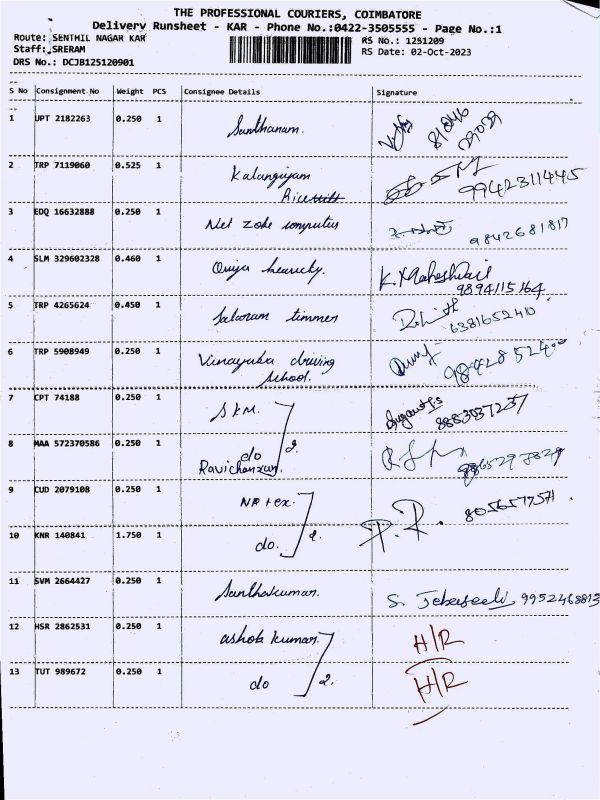 THE PROFESSIONAL COURIERS, COIMBATORE
Delivery Runsheet - KAR - Phone No.:0422-3505555 - Page No.:1
Route: SENTHIL NAGAR KAR
RS No.: 1251209
Staff: SRERAM
RS Date: 02-Oct-2023
DRS No.: DCJB125120901
S No Consignment No Weight PCS Consignee Details Signature
1 UPT 2182263 0.250 1 Santhanam.
2 TRP 7119060 0.525 1 Kalangiyam
Rice
9942311445
3 EDQ 16632888 0.250 1 Net zone computers
9842681817
4 SLM 329602328 0.460 1 K. Maheshwari
9894115164
5 TRP 4265624 0.450 1 timmer
6381652410
6 TRP 5908949 0.250 1 Vinayaka driving
school.
7 CPT 74188 0.250 1 SKM.
8883037237
8 MAA 572370586 0.250 1 do 2.
Ravichandran
9 CUD 2079108 0.250 1
10 KNR 140841 1.750 1 do. 2.
11 SVM 2664427 0.250 1 Santhakumar. S. 9952468813
12 HSR 2862531 0.250 1 ashok kumar. H/R
13 TUT 989672 0.250 1 do 2. H/R